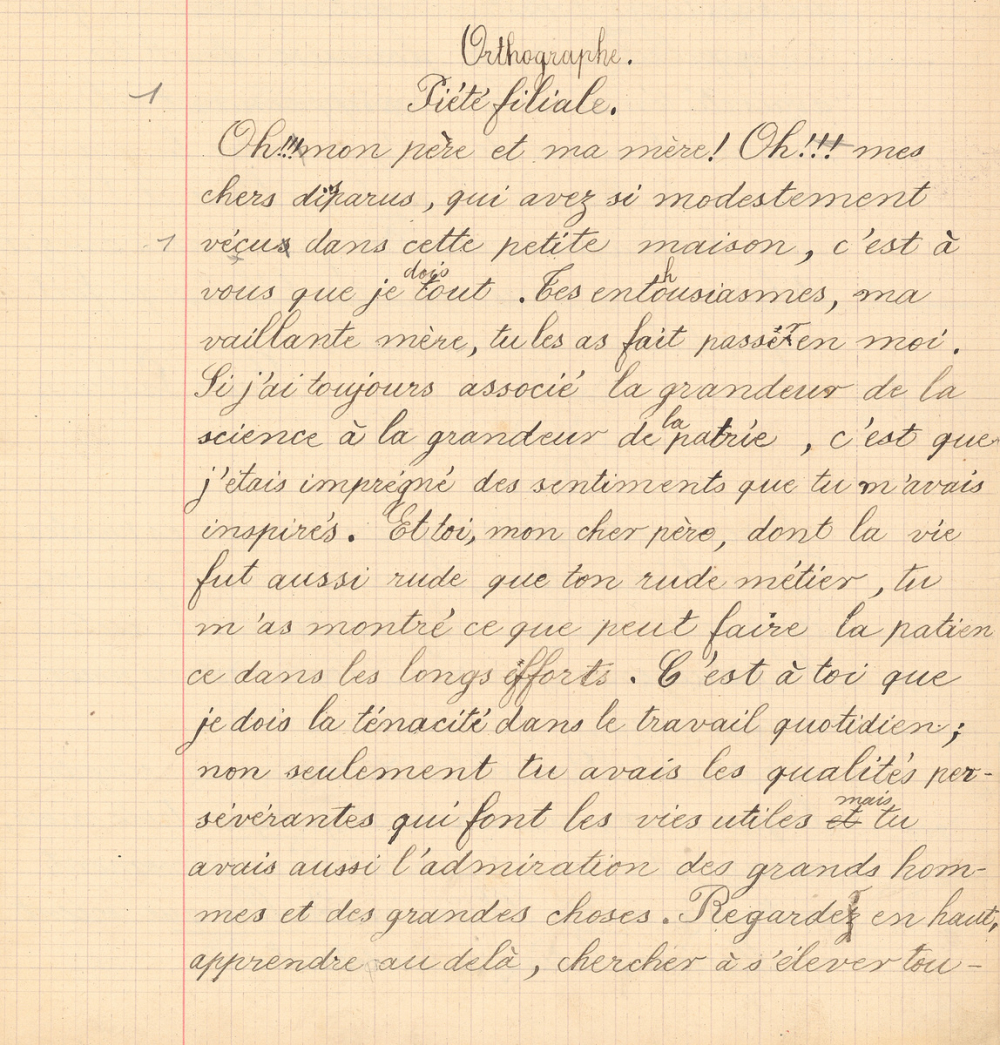 Orthographe.
1
Piété filiale.
Oh!!! mon père et ma mère! Oh!!! mes
chers disparus, qui avez si modestement
1
vécus dans cette petite maison, c'est à
vous que je dois tout. Tes enthousiasmes, ma
vaillante mère, tu les as fait passer en moi.
Si j'ai toujours associé la grandeur de la
science à la grandeur de la patrie, c'est que
j'étais imprégné des sentiments que tu m'avais
inspirés. Et toi, mon cher père, dont la vie
fut aussi rude que ton rude métier, tu
m'as montré ce que peut faire la patien
ce dans les longs efforts. C'est à toi que
je dois la ténacité dans le travail quotidien;
non seulement tu avais les qualités per-
sévérantes qui font les vies utiles et mais tu
avais aussi l'admiration des grands hom-
mes et des grandes choses. Regarder en haut,
apprendre au delà, chercher à s'élever tou-